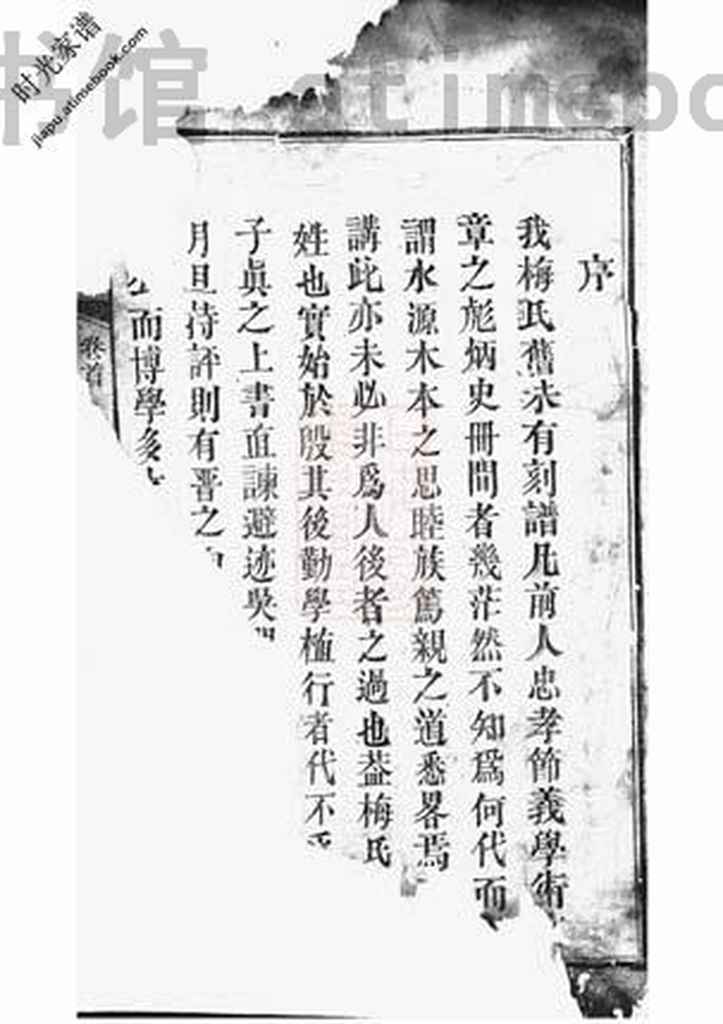 序
我梅氏舊未有刻譜凡前人忠孝節義學術
章之彪炳史冊間者幾茫然不知爲何代而
謂水源木本之思睦族篤親之道悉畧焉
講此亦未必非爲人後者之過也葢梅氏
姓也實始於殷其後勤學植行者代不
子眞之上書直諫避迹吳
月旦持評則有晋之
而博學多
卷首
时光家谱
jiapu.atimebook.com
书馆 atimebo